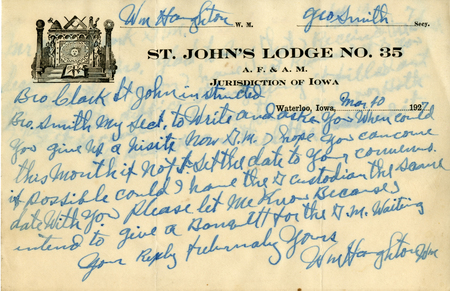 Wm Haughton W. M. Geo Smith Secy.
ST. JOHN'S LODGE NO. 35
A. F. & A. M.
JURISDICTION OF IOWA
Waterloo, Iowa, May 10 1927
Bro Clark St John instructed
Bro. Smith My Sect. to Write and ask you When could
You give us a visite Now G.M. I hope you can come
this Month if not I set the date to Your convens.
if possible could I have the G custodian the same
date With You Please let Me Know Because I
intend to give a Banquett for the G.M. Waiting
Your Reply Fraternally Yours
Wm Haughton Wm